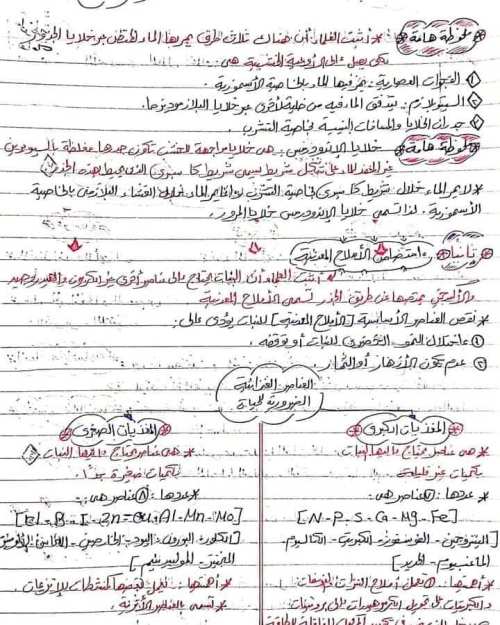 ملحوظة هامة * أثبت العلماء أن هناك ثلاث طرق يمر بها الماء الممتص عبر خلايا الجذر
لكى يصل إلى الأوعية الخشبية هى
① الفجوات العصارية: يمر فيها الماء بالخاصية الأسموزية.
② السيتوبلازم: يتدفق الماء فيه من خلية لأخرى عبر خلايا البلازموديزما.
③ جدران الخلايا والمسافات البينية بخاصية التشرب.
ملحوظة هامة خلايا الإندودرمس: هى خلايا جدرها مغلظة بالسيوبرين
غير المنفذ للماء شريط يسمى شريط كاسبرى
* لا يمر الماء خلال شريط كاسبرى بخاصية التشرب وإنما يمر الماء خلال الغشاء البلازمى بالخاصية
الأسموزية. لذا تسمى خلايا الإندودرمس خلايا المرور.
ثانياً امتصاص الأملاح المعدنية
* أثبت العلماء أن النبات يحتاج إلى عناصر أخرى غير الكربون والهيدروجين
والأكسجين يمتصها عن طريق الجذر تسمى الأملاح المعدنية
* نقص العناصر الأساسية [الأملاح المعدنية] للنبات يؤدى إلى:
① اختلال النمو الخضرى للنبات أو توقفه.
② عدم تكون الأزهار أو الثمار.
العناصر الغذائية
الضرورية للحياة
المغذيات الكبرى
* هى عناصر يحتاج إليها النبات
بكميات غير قليلة.
* عددها: ⑦ عناصر هى:
[N - P - S - Ca - Mg - Fe]
[النيتروجين - الفوسفور - الكبريت - الكالسيوم -
الماغنسيوم - الحديد]
* أهميتها: تعمل أملاح النترات والفوسفات
والكبريتات على تحويل الكربوهيدرات إلى بروتينات
المغذيات الصغرى
* هى عناصر يحتاج إليها النبات
بكميات صغيرة جداً.
* عددها: ⑧ عناصر هى:
[Cl - B - I - Zn - Cu - Al - Mn - Mo]
[الكلور - البورون - اليود - الخارصين - النحاس - الألومنيوم
المنجنيز - الموليبدنيوم]
* أهميتها: تعمل كمنشطات للإنزيمات.
* تسمى بالعناصر الأثرية.